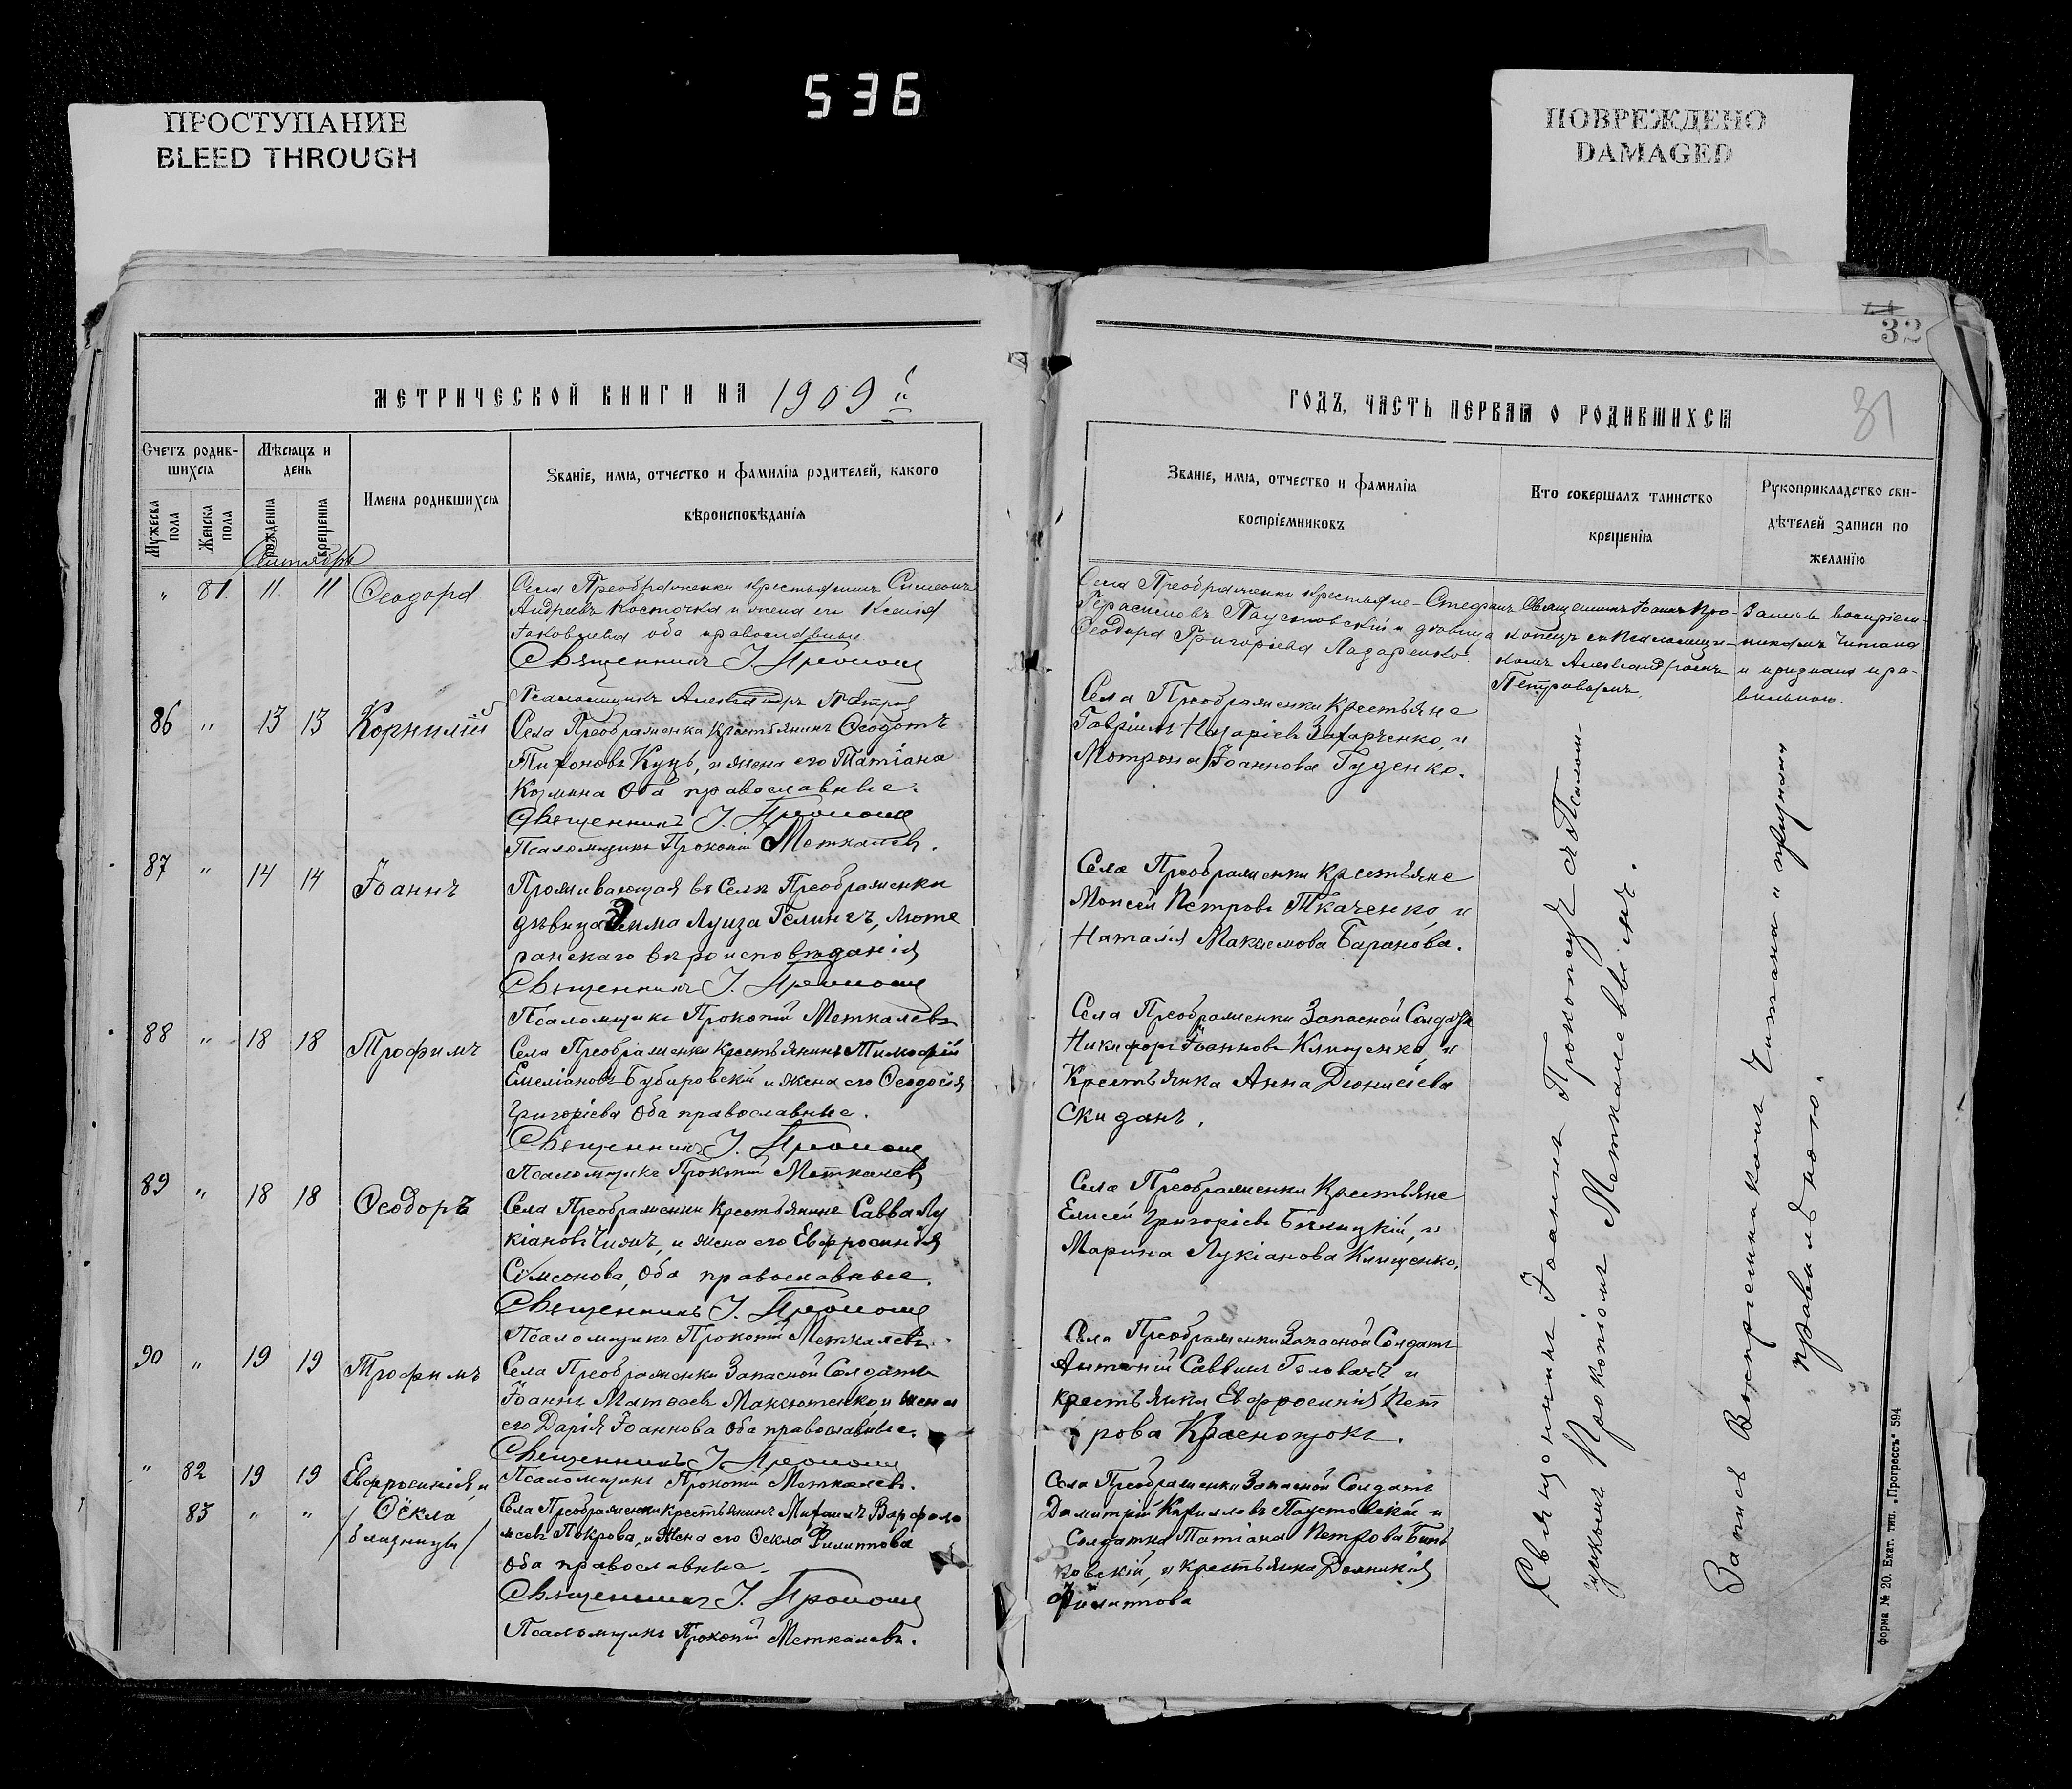 536
ПРОСТУПАНИЕ
BLEED THROUGH
ПОВРЕЖДЕНО
DAMAGED
32
31
МЕТРИЧЕСКОЙ КНИГИ НА 1909
ГОДЪ, ЧАСТЬ ПЕРВАЯ О РОДИВШИХСЯ
Счетъ родив-
шихся
Мужеска пола
Женска пола
Мѣсяцъ и
день
рожденія
крещенія
Имена родившихся
Званіе, имя, отчество и фамилія родителей, какого
вѣроисповѣданія
Званіе, имя, отчество и фамилія
воспріемниковъ
Кто совершалъ таинство
крещенія
Рукоприкладство сви-
дѣтелей записи по
желанію
Сентябрь
" 81. 11. 11. Ѳеодора
Села Преображенки крестьянинъ Симеонъ
Андреевъ Косточка и жена его Ксенія
Іаковлева оба православные
Священникъ І. Прокопецъ
Псаломщикъ Александръ Петров
Села Преображенки крестьяне - Стефанъ
Герасимовъ Паустовскій и дѣвица
Ѳеодора Григорьева Лазаренко.
Священникъ Іоаннъ Про-
копецъ съ Псаломщи-
комъ Александромъ
Петровымъ.
Запись воспріем-
никамъ читана
и признана пра-
вильною.
86 " 13 13 Корнилій
Села Преображенки Крестьянинъ Ѳеодотъ
Тихоновъ Куцъ, и жена его Татіана
Козмина Оба православные.
Священникъ І. Прокопецъ
Псаломщикъ Прокопій Меткалевъ.
Села Преображенки Крестьяне
Гавріилъ Назаріевъ Захарченко, и
Мотрона Іоаннова Гуденко.
87 " 14 14 Іоаннъ
Проживающая въ Селѣ Преображенки
дѣвица Эмма Луиза Гелингъ, люте
ранскаго вѣроисповѣданія
Священникъ І. Прокопецъ
Псаломщикъ Прокопій Меткалевъ
Села Преображенки Крестьяне
Моисей Петровъ Ткаченко, и
Наталія Максимова Баранова.
88 " 18 18 Трофимъ
Села Преображенки Крестьянинъ Тимофей
Емеліановъ Бубыровскій и жена его Ѳеодосія
Григоріева Оба православные.
Священникъ І. Прокопецъ
Псаломщикъ Прокопій Меткалевъ
Села Преображенки Запасной Солдатъ
Никифоръ Іоанновъ Клищенко, и
Крестьянка Анна Діонисіева
Скиданъ.
89 " 18 18 Ѳеодоръ
Села Преображенки Крестьянинъ Савва Лу
кіановъ Чижъ, и жена его Евфросинія
Симеонова, Оба православные.
Священникъ І. Прокопецъ
Псаломщикъ Прокопій Меткалевъ.
Села Преображенки Крестьяне
Елисей Григоріевъ Бялицкій, и
Марина Лукіанова Клищенко.
90 " 19 19 Трофимъ
Села Преображенки Запасной Солдатъ
Іоаннъ Матѳеевъ Максютенко и жена
его Дарія Іоаннова Оба православные.
Священникъ І. Прокопецъ
Псаломщикъ Прокопій Меткалевъ.
Села Преображенки Запасной Солдатъ
Антоній Саввинъ Головачъ, и
крестьянка Евфросинія Пет
рова Краснощокъ.
" 82 19 19 Евфросинія и
83 " " Ѳёкла
/близницы/
Села Преображенки Крестьянинъ Михаилъ Варфоло
меевъ Покрова, и Жена его Ѳекла Филиппова
Оба православные.
Священникъ І. Прокопецъ
Псаломщикъ Прокопій Меткалевъ.
Села Преображенки Запасной Солдатъ
Димитрій Кирилловъ Паустовскій и
Солдатка Татіана Петрова Бинь
ковскій, и крестьянка Домникія
Филиппова
Священникъ Іоаннъ Прокопецъ съ Псалом-
щикомъ Прокопіемъ Меткалевымъ.
Запись Воспріемниками Читана и признана
правильною.
Форма № 20. Екат. тип. „Прогрессъ“ 594